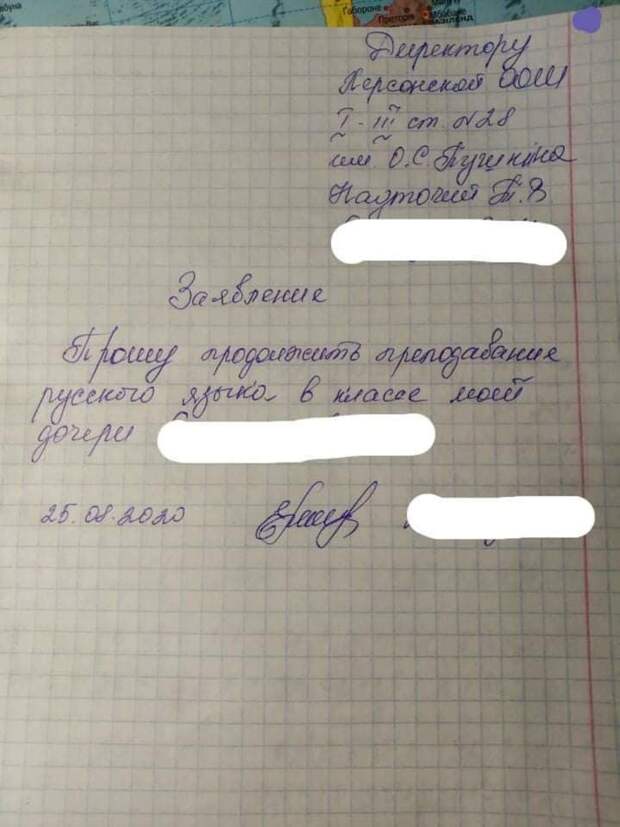 Габороне
Претория
Директору
Херсонской ООШ
I-III ст. №28
им. О.С. Пушкина
Науточий Т.В
Заявление
Прошу продолжить преподавание
русского языка в классе моей
дочери
25.08.2020